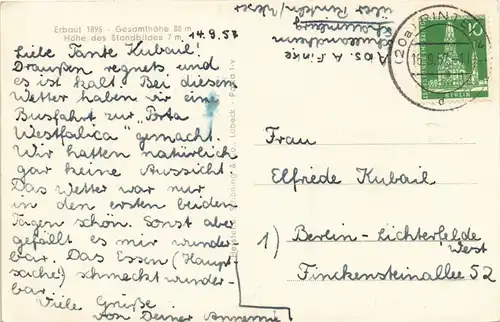 Erbaut 1896 - Gesamthöhe 88 m
Höhe des Standbildes 7 m
14.9.57
Liebe Tante Kubail!
Draußen regnets und
es ist kalt. Bei diesem
Wetter haben wir eine
Busfahrt zur „Porta
Westfalica" gemacht.
Wir hatten natürlich
gar keine Aussicht
Das Wetter war nur
in den ersten beiden
Tagen schön. Sonst aber
gefällt es mir wunder
bar. Das Essen (Haupt-
sache!) schmeckt wunder-
bar.
Viele Grüße
von Deiner Annemie
Schöning & Co., Lübeck
Abs. A. Finke
Schullandheim
Schaumburg
über Rinteln/Weser
(20a) RINTELN
BERLIN
Frau
Elfriede Kubail
1) Berlin-Lichterfelde
West
Finckensteinallee 52